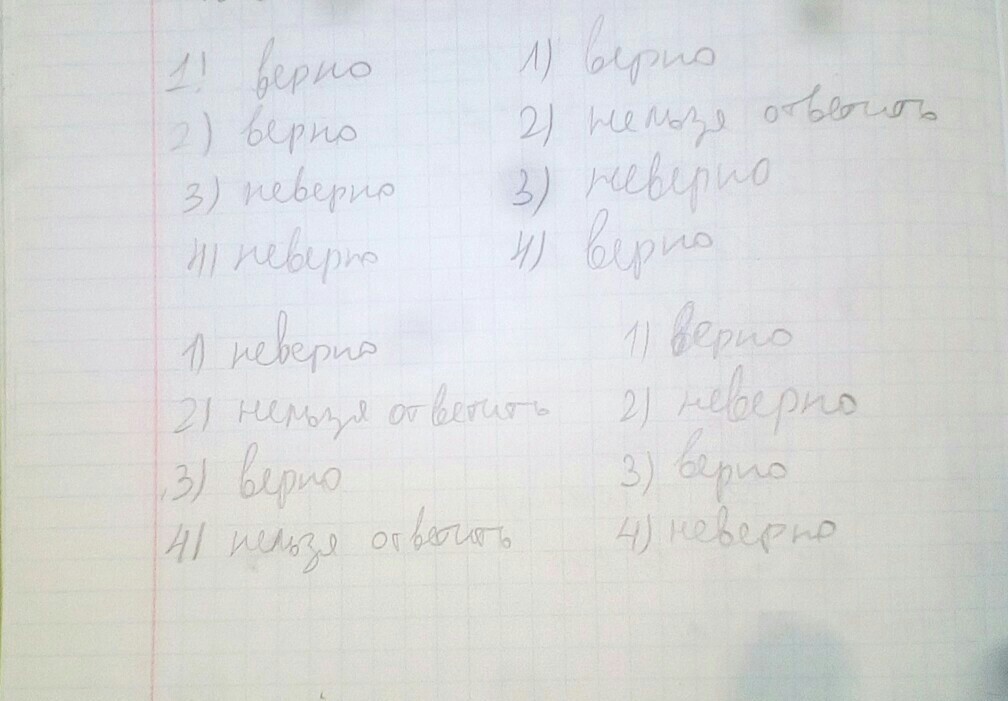 1! верно
2) верно
3) неверно
4) неверно
1) верно
2) нельзя ответить
3) неверно
4) верно
1) неверно
2) нельзя ответить
3) верно
4) нельзя ответить
1) верно
2) неверно
3) верно
4) неверно